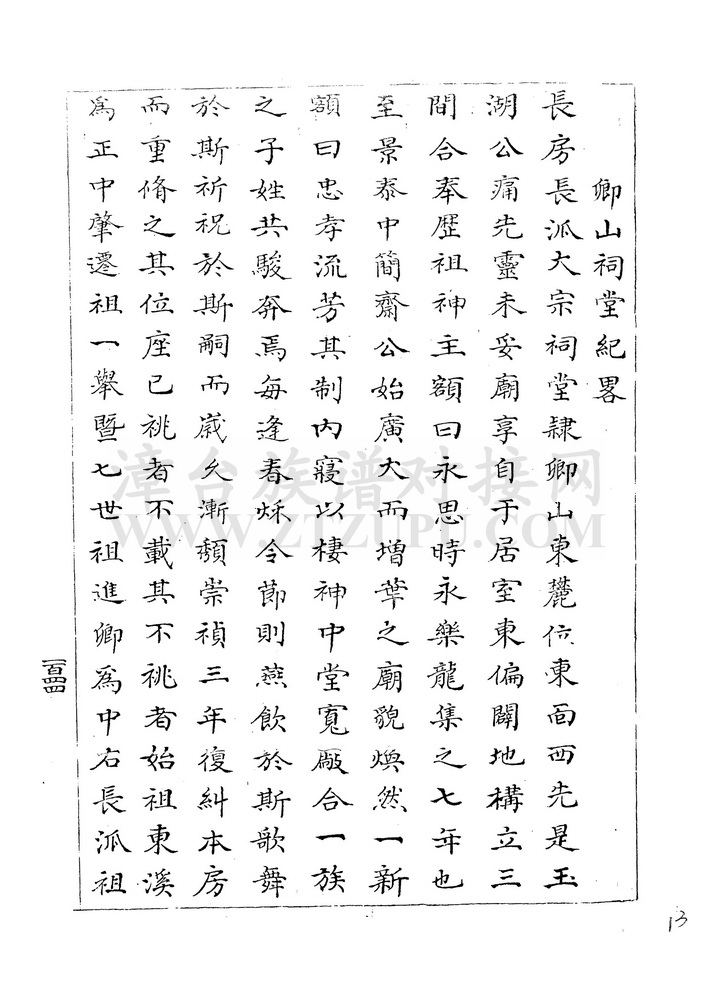 卿山祠堂紀畧
長房長派大宗祠堂隷卿山東麓位東面西先是玉
湖公痛先靈未妥廟享自于居室東偏闢地構立三
間合奉歷祖神主額曰永思時永樂龍集之七年也
至景泰中簡齋公始廣大而增葺之廟貌煥然一新
額曰忠孝流芳其制內寢以棲神中堂寬厰合一族
之子姓共駿奔焉每逢春秌令節則燕飲於斯歌舞
於斯祈祝於斯嗣而歲久漸頹崇禎三年復糾本房
而重脩之其位座已祧者不載其不祧者始祖東溪
為正中肇遷祖一舉暨七世祖進卿為中右長派祖
一百四四
13
漳台族谱对接网
WWW.ZTZUPU.COM